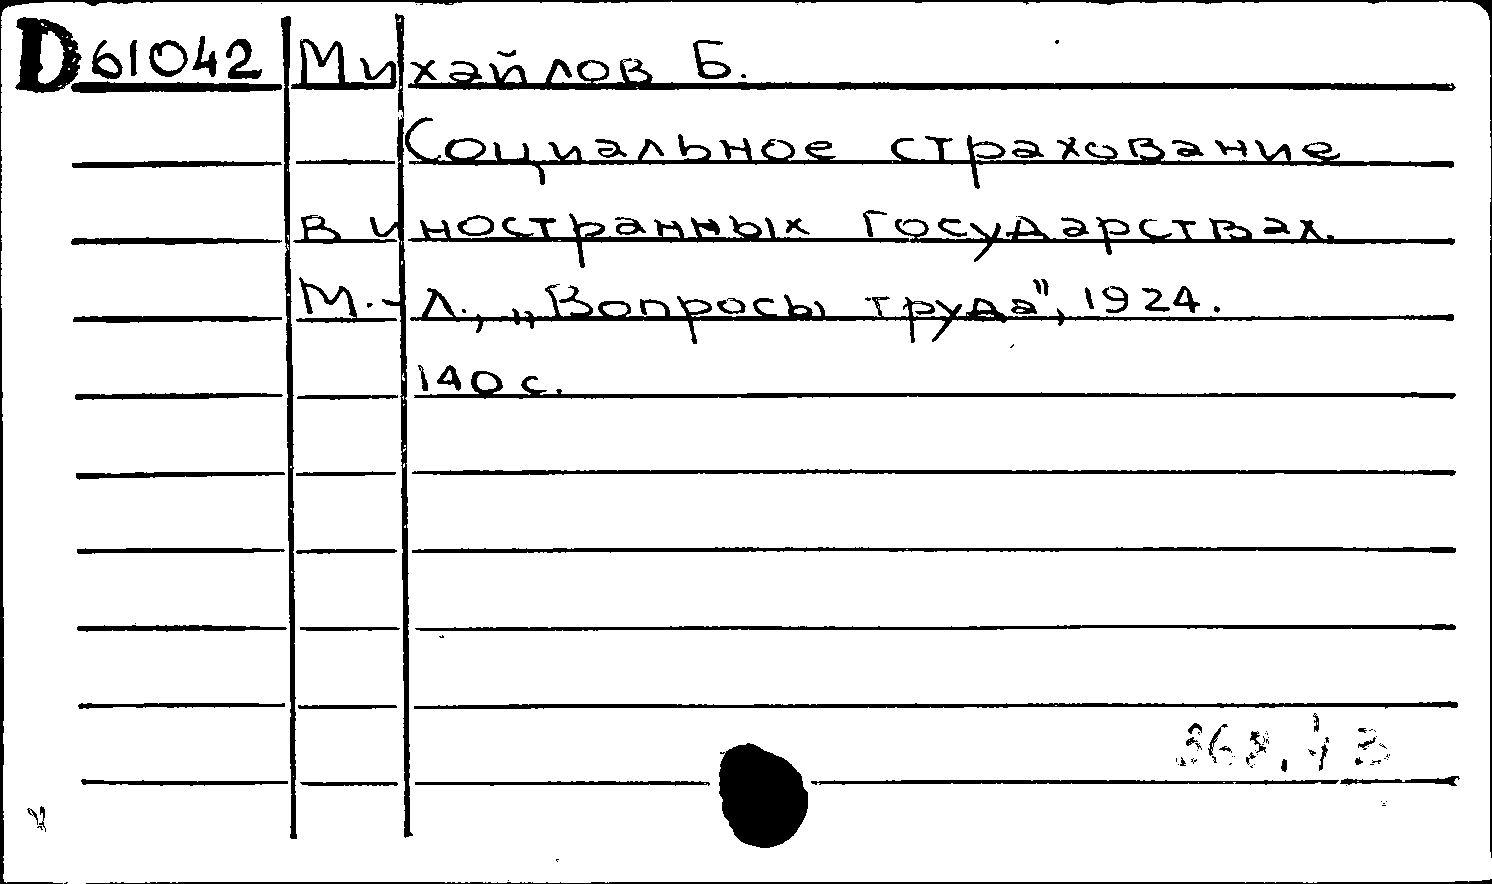 D61042 Михайлов Б.
Социальное страхование
в иностранных государствах.
М.-Л., „Вопросы труда", 1924.
140 с.